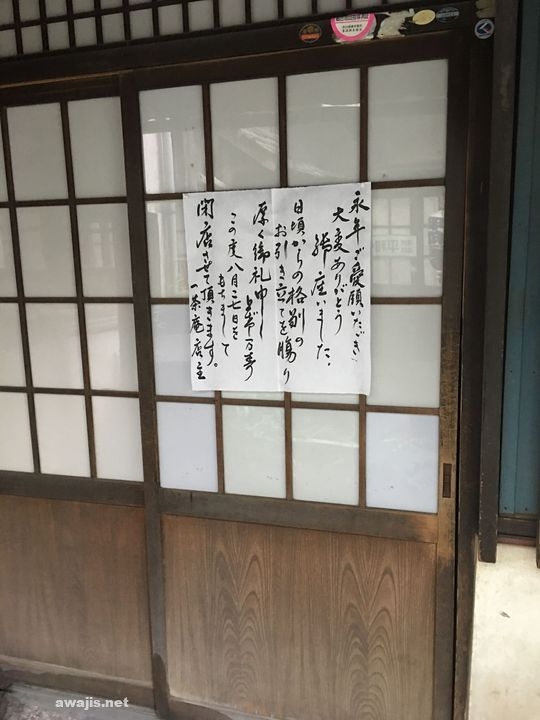 永年ご愛顧いただき
大変ありがとう
御座いました。
日頃からの格別の
お引き立てを賜り
厚く御礼申し
上げます
この度八月二七日を
もちまして
閉店させて頂きます。
一茶庵店主
awajis.net